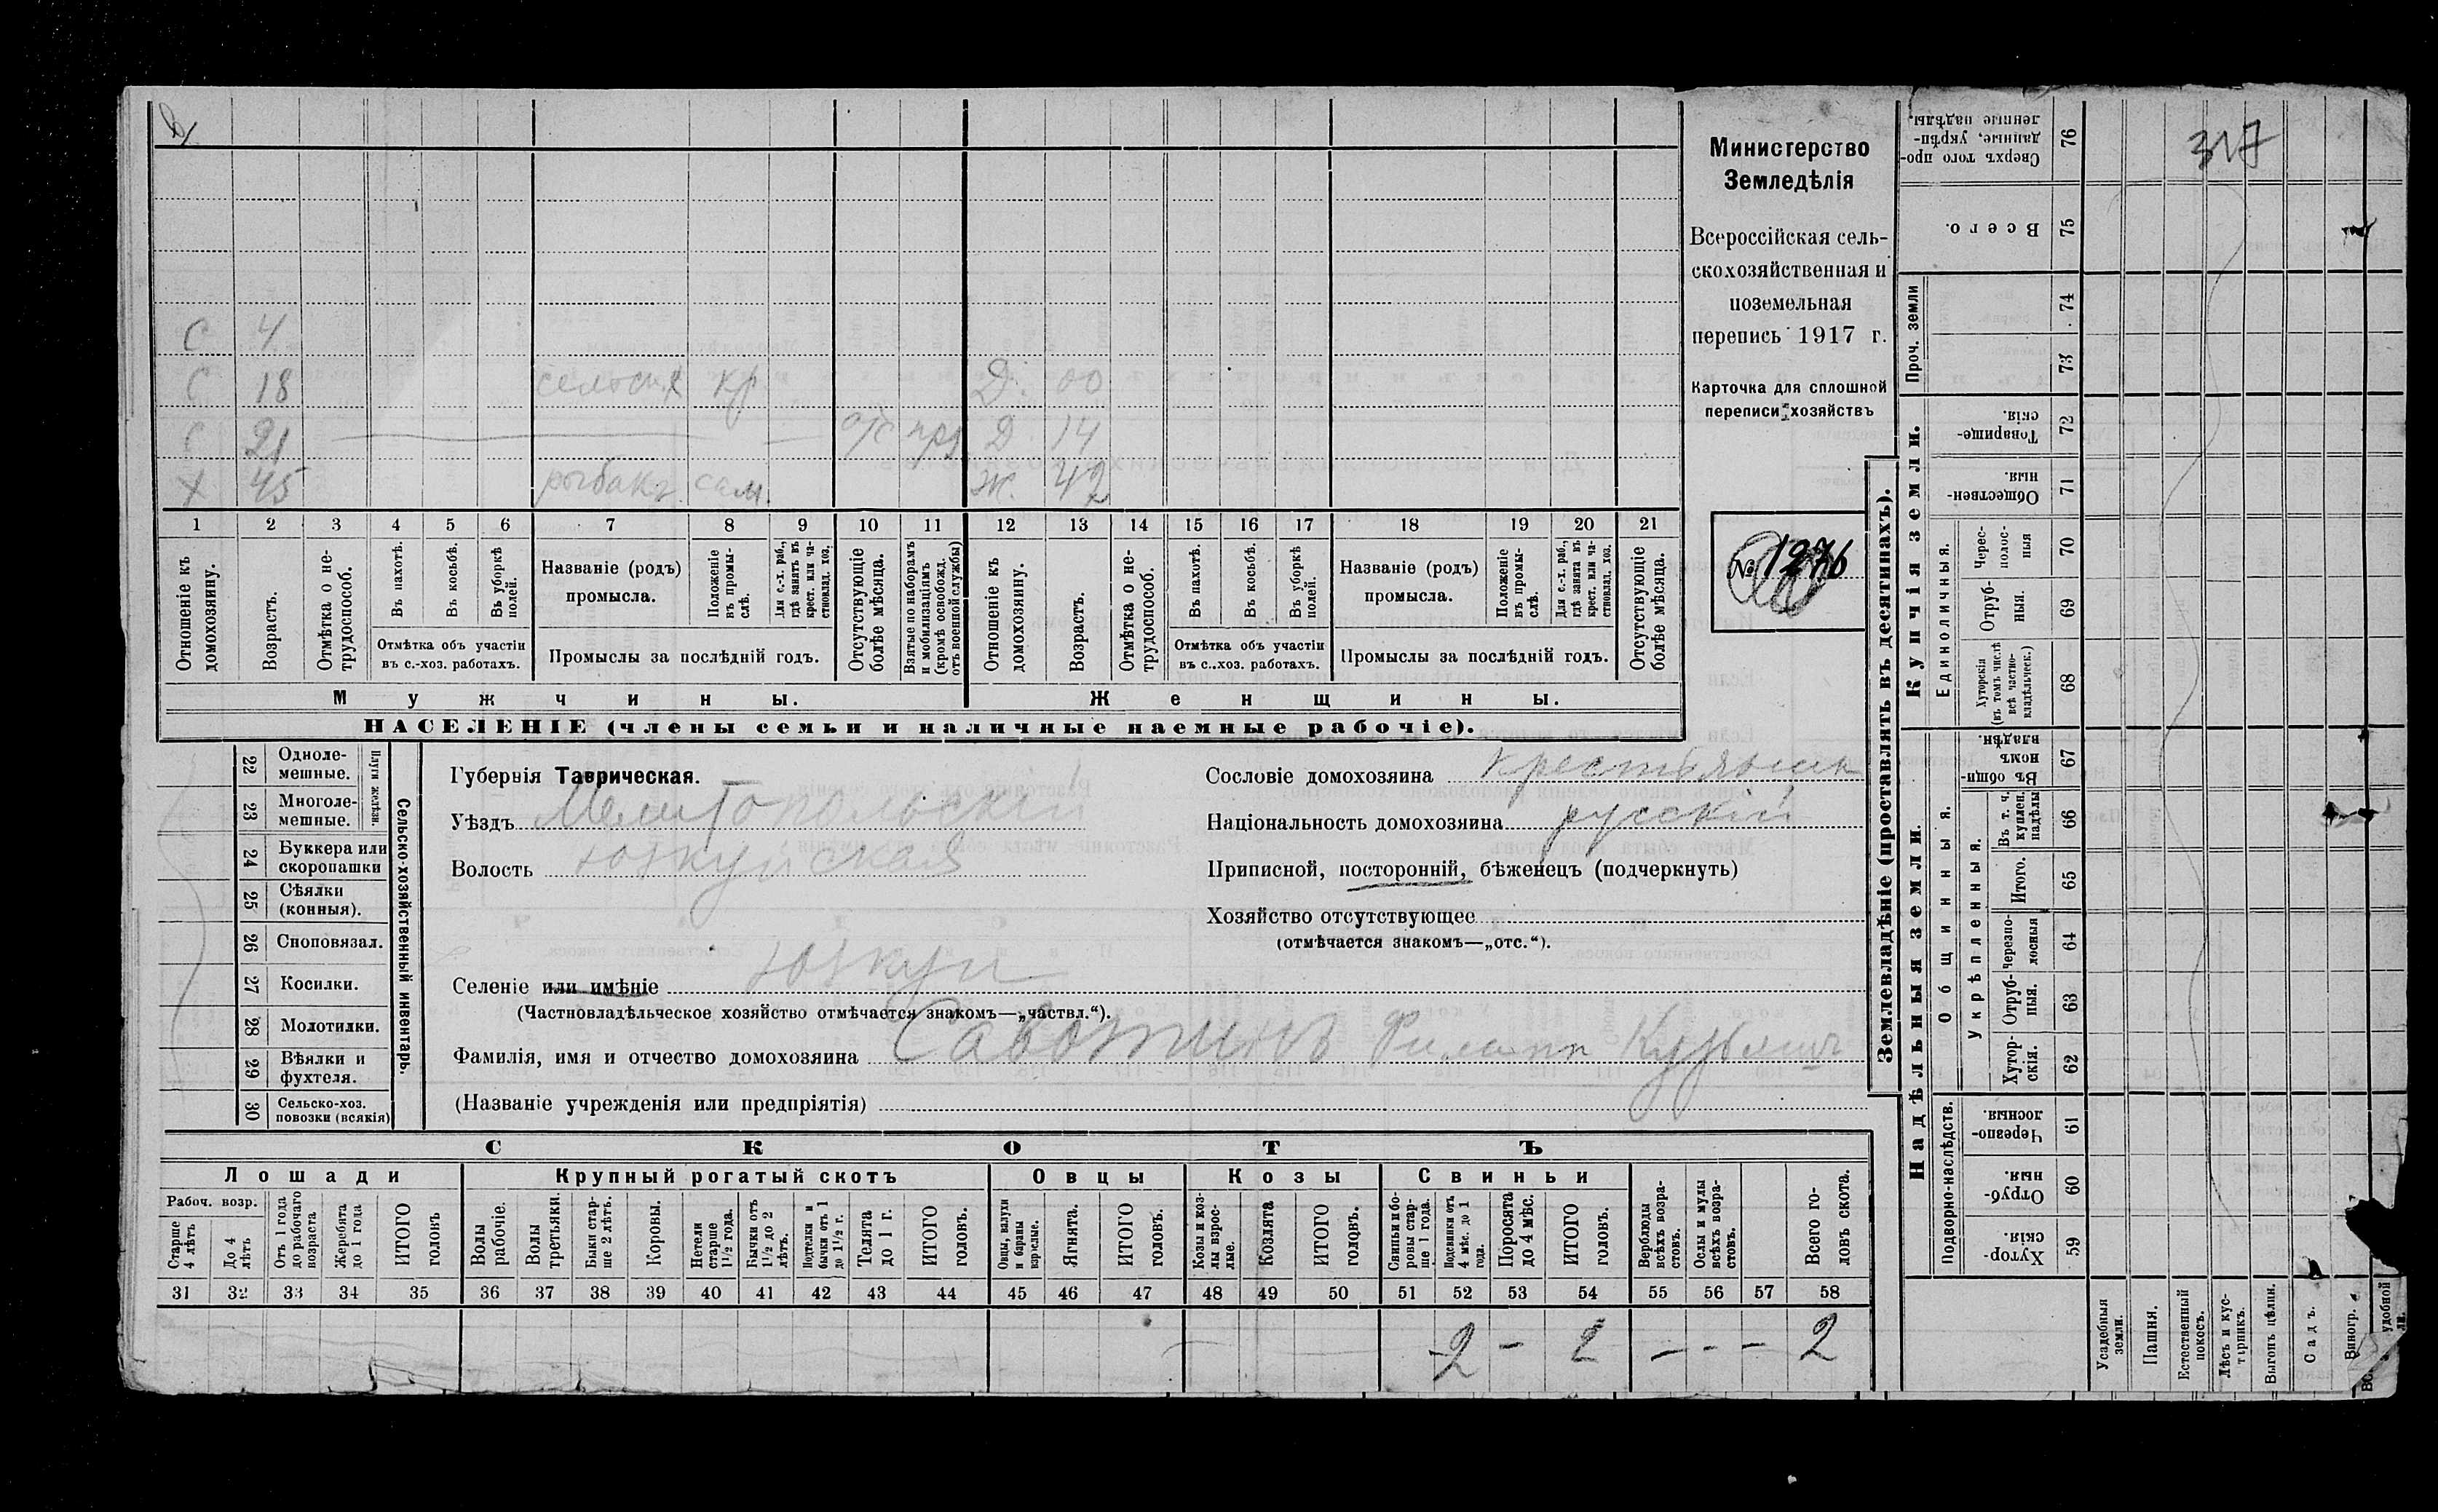 С 4
С 18 кр. Д. 00
С 21 отс Д 14
Х 45 рыбакъ сам. Ж. 42
1 2 3 4 5 6 7 8 9 10 11 12 13 14 15 16 17 18 19 20 21
Отношеніе къ домохозяину.
Возрастъ.
Отмѣтка о не-трудоспособ.
Въ пахотѣ.
Въ косьбѣ.
Въ уборкѣ полей.
Отмѣтка объ участіи въ с.-хоз. работахъ.
Названіе (родъ) промысла.
Положеніе въ промы-слѣ.
Для с.-х. раб., гдѣ занятъ въ крест. или ча-стновлад. хоз.
Промыслы за послѣдній годъ.
Отсутствующіе болѣе мѣсяца.
Взятые по наборамъ и мобилизаціямъ (кромѣ освобожд. отъ военной службы)
Отношеніе къ домохозяину.
Возрастъ.
Отмѣтка о не-трудоспособ.
Въ пахотѣ.
Въ косьбѣ.
Въ уборкѣ полей.
Отмѣтка объ участіи въ с..хоз. работахъ.
Названіе (родъ) промысла.
Положеніе въ промы-слѣ.
Для с.-х. раб., гдѣ занята въ крест. или ча-стновлад. хоз.
Промыслы за послѣдній годъ.
Отсутствующіе болѣе мѣсяца.
Мужчины. Женщины.
НАСЕЛЕНІЕ (члены семьи и наличные наемные рабочіе).
Министерство
Земледѣлія
Всероссійская сель-
скохозяйственная и
поземельная
перепись 1917 г.
Карточка для сплошной
переписи хозяйствъ
№ 1276
22 Одноле-мешные.
23 Многоле-мешные.
Плуги желѣзн.
24 Буккера или скоропашки
25 Сѣялки (конныя).
26 Сноповязал.
27 Косилки.
28 Молотилки.
29 Вѣялки и фухтеля.
30 Сельско-хоз. повозки (всякія)
Сельско-хозяйственный инвентарь.
Губернія Таврическая.
Уѣздъ Мелитопольскій
Волость Юзкуйская
Селеніе или имѣніе Юзкуи
(Частновладѣльческое хозяйство отмѣчается знакомъ—„частвл.“).
Фамилія, имя и отчество домохозяина Савотинъ Филиппъ Кузьмичъ
(Названіе учрежденія или предпріятія)
Сословіе домохозяина крестьянинъ
Національность домохозяина русскій
Приписной, посторонній, бѣженецъ (подчеркнуть)
Хозяйство отсутствующее
(отмѣчается знакомъ—„отс.“).
СКОТЪ
Лошади Крупный рогатый скотъ Овцы Козы Свиньи
Рабоч. возр.
Старше 4 лѣтъ
До 4 лѣтъ
Отъ 1 года до рабочаго возраста
Жеребята до 1 года
ИТОГО головъ
Волы рабочіе.
Волы третьяки.
Быки стар-ше 2 лѣтъ.
Коровы.
Нетели старше 1½ года.
Бычки отъ 1½ до 2 лѣтъ.
Подтелки и бычки отъ 1 до 1½ г.
Телята до 1 г.
ИТОГО головъ.
Овцы, валухи и бараны взрослые.
Ягнята.
ИТОГО головъ.
Козы и коз-лы взрос-лые.
Козлята
ИТОГО головъ.
Свиньи и бо-ровы стар-ше 1 года.
Подсвинки отъ 4 мѣс. до 1 года.
Поросята до 4 мѣс.
ИТОГО головъ.
Верблюды всѣхъ возра-стовъ.
Ослы и мулы всѣхъ возра-стовъ.
Всего го-ловъ скота.
31 32 33 34 35 36 37 38 39 40 41 42 43 44 45 46 47 48 49 50 51 52 53 54 55 56 57 58
2 - 2 - - - 2
Землевладѣніе (проставлять въ десятинахъ).
317
Сверхъ того про-данные, укрѣп-ленные надѣлы. 76
Всего. 75
Проч. земли 74 73
Купчія земли.
Товарище-скія. 72
Обществен-ныя 71
Единоличныя.
Черес-полос-ныя 70
Отруб-ныя. 69
Хуторскія (въ томъ числѣ всѣ частно-владѣльческ.) 68
Надѣльныя земли.
Общинныя.
Въ общин-номъ владѣн. 67
Укрѣпленныя.
Въ т. ч. куплен. надѣлы 66
Итого. 65
Черезпо-лосныя 64
Отруб-ныя. 63
Хутор-скія. 62
Подворно-наслѣдств.
Черезпо-лосныя. 61
Отруб-ныя. 60
Хутор-скія. 59
Усадебныя земли.
Пашня.
Естественный покосъ.
Лѣсъ и кус-тарникъ.
Выгонъ цѣлин.
Садъ.
Виногр.
удобной